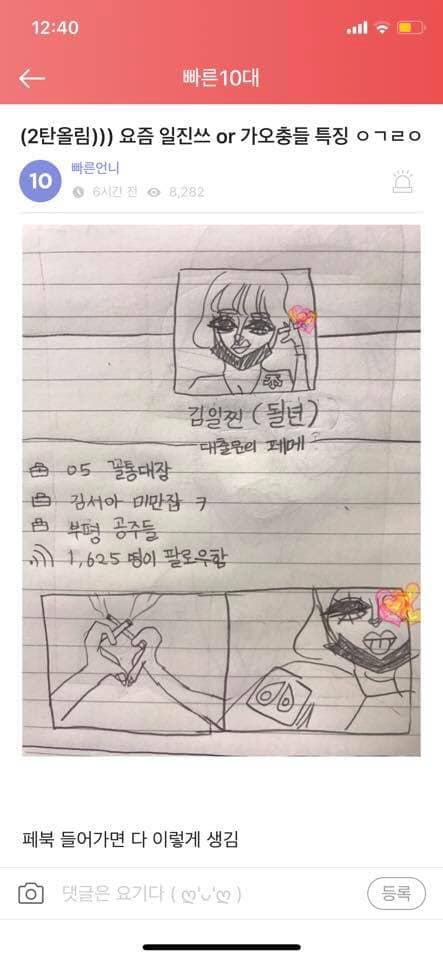 12:40
빠른10대
(2탄올림))) 요즘 일진쓰 or 가오충들 특징 ㅇㄱㄹㅇ
10
빠른언니
6시간 전 8,282
김일찐 (될년)
대출문의 페메
05 꼴통대장
김서아 미만잡 ㅋ
부평 공주들
1,625 명이 팔로우함
페북 들어가면 다 이렇게 생김
댓글은 요기다 ( ღ'ᴗ'ღ )
등록